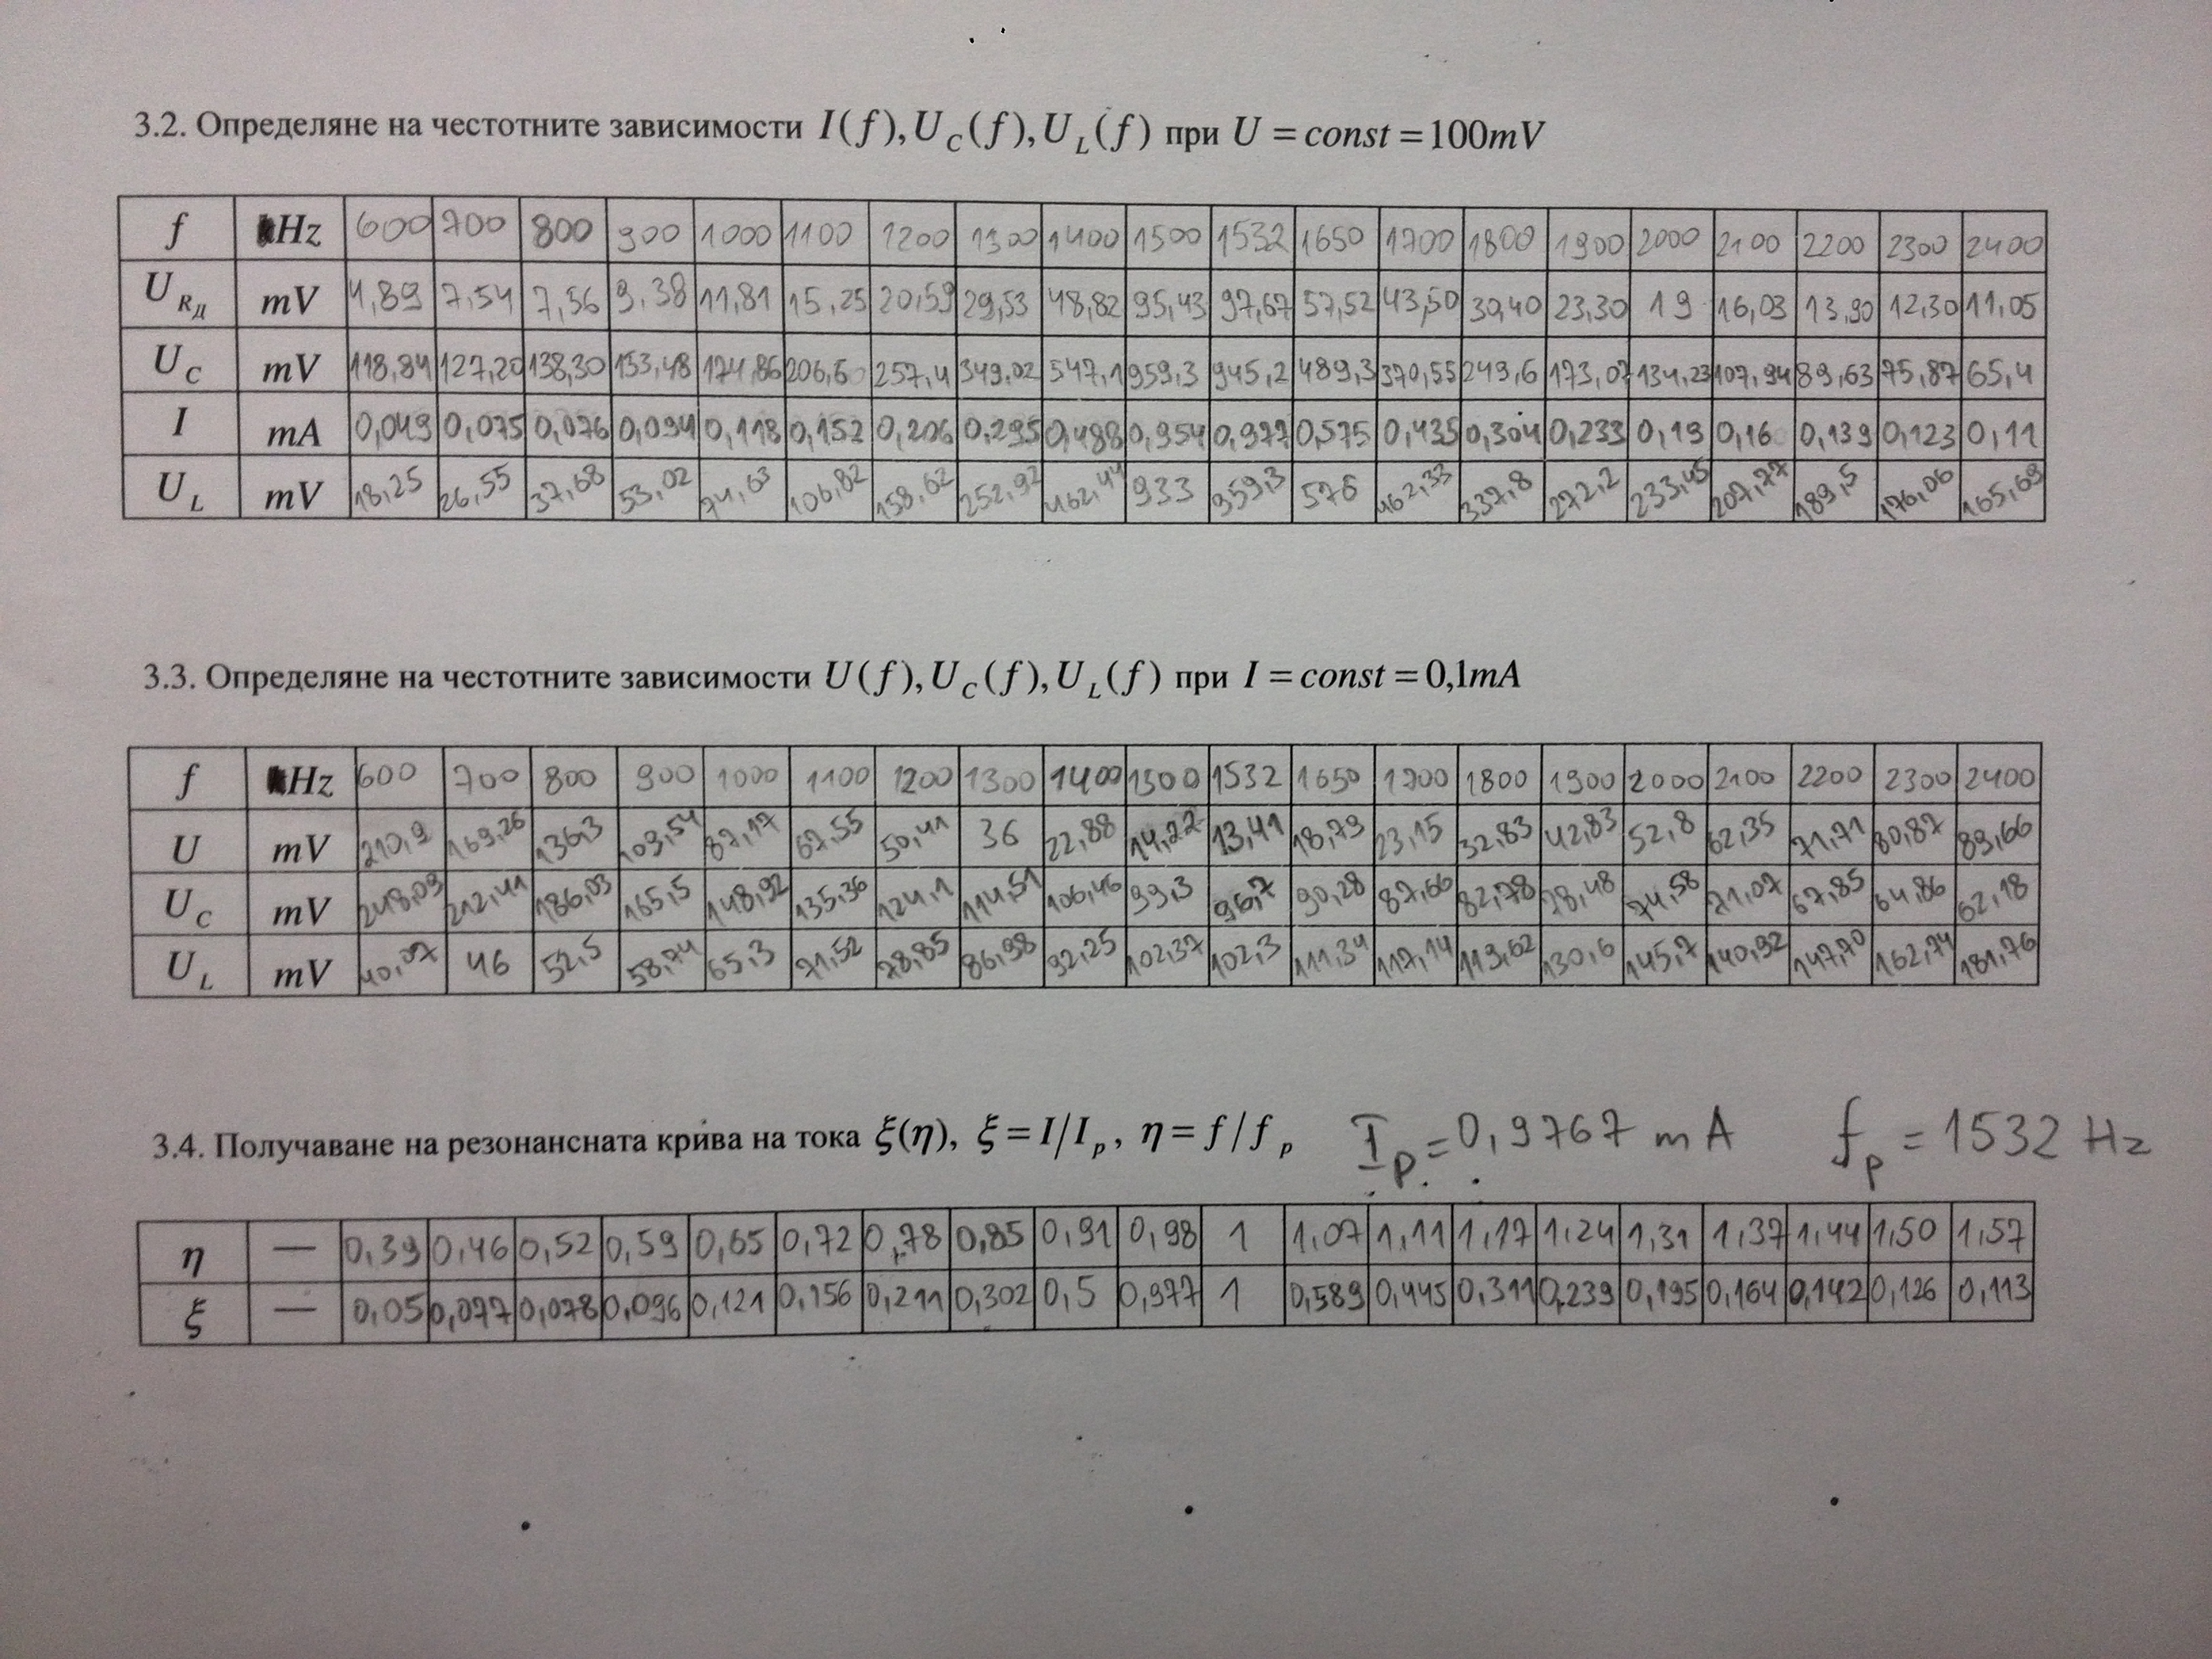 3.2. Определяне на честотните зависимости I(f), U_C(f), U_L(f) при U = const = 100mV
f Hz 600 700 800 900 1000 1100 1200 1300 1400 1500 1532 1650 1700 1800 1900 2000 2100 2200 2300 2400
U_RД mV 4,89 7,54 7,56 9,38 11,81 15,25 20,59 29,53 48,82 95,43 97,67 57,52 43,50 30,40 23,30 19 16,03 13,90 12,30 11,05
U_C mV 118,84 127,20 138,30 153,48 174,86 206,60 257,4 349,02 547,1 959,3 945,2 489,3 370,55 249,6 173,07 134,23 107,94 89,63 75,87 65,4
I mA 0,049 0,075 0,076 0,094 0,118 0,152 0,206 0,295 0,488 0,954 0,977 0,575 0,435 0,304 0,233 0,19 0,16 0,139 0,123 0,11
U_L mV 18,25 26,55 37,68 53,02 74,63 106,82 158,62 252,92 462,44 933 959,3 576 462,33 337,8 272,2 233,45 207,77 189,5 176,06 165,69
3.3. Определяне на честотните зависимости U(f), U_C(f), U_L(f) при I = const = 0,1mA
f Hz 600 700 800 900 1000 1100 1200 1300 1400 1500 1532 1650 1700 1800 1900 2000 2100 2200 2300 2400
U mV 210,9 169,26 136,3 109,54 87,17 67,55 50,41 36 22,88 14,22 13,41 18,79 23,15 32,83 42,83 52,8 62,35 71,71 80,87 89,66
U_C mV 248,09 212,41 186,03 165,5 148,92 135,36 124,1 114,51 106,46 99,3 96,7 90,28 87,66 82,78 78,48 74,58 71,07 67,85 64,86 62,18
U_L mV 40,07 46 52,5 58,74 65,3 71,52 78,85 86,98 92,25 102,37 102,3 111,34 117,14 113,62 130,6 145,7 140,92 147,70 162,74 181,76
3.4. Получаване на резонансната крива на тока ξ(η), ξ = I/I_p, η = f/f_p I_p = 0,9767 mA f_p = 1532 Hz
η — 0,39 0,46 0,52 0,59 0,65 0,72 0,78 0,85 0,91 0,98 1 1,07 1,11 1,17 1,24 1,31 1,37 1,44 1,50 1,57
ξ — 0,05 0,077 0,078 0,096 0,121 0,156 0,211 0,302 0,5 0,977 1 0,589 0,445 0,311 0,239 0,195 0,164 0,142 0,126 0,113